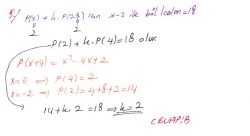 P(x) + k.P(2x) in x-2 ile böl kalan = 18
2 2
P(2) + k.P(4) = 18 olur.
P(x+4) = x² - 4x + 2
x = 0 ⟹ P(4) = 2
x = -2 ⟹ P(2) = 4+8+2 = 14
14 + k.2 = 18 ⟹ k = 2
CEVAP: B